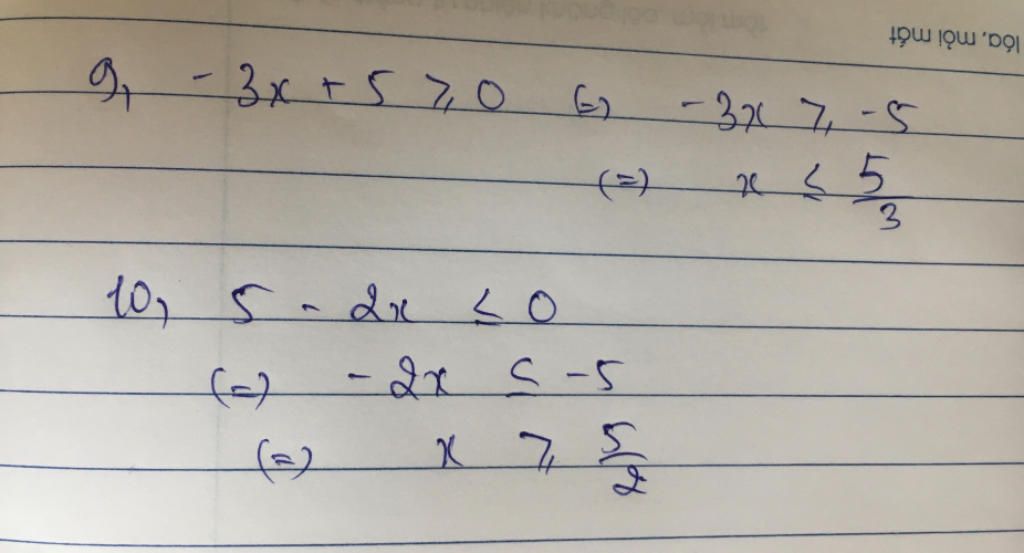 lóa, mỏi mắt
9, -3x + 5 ⩾ 0 (=) -3x ⩾ -5
(=) x ≤ 5/3
10, 5 - 2x ≤ 0
(=) -2x ≤ -5
(=) x ⩾ 5/2